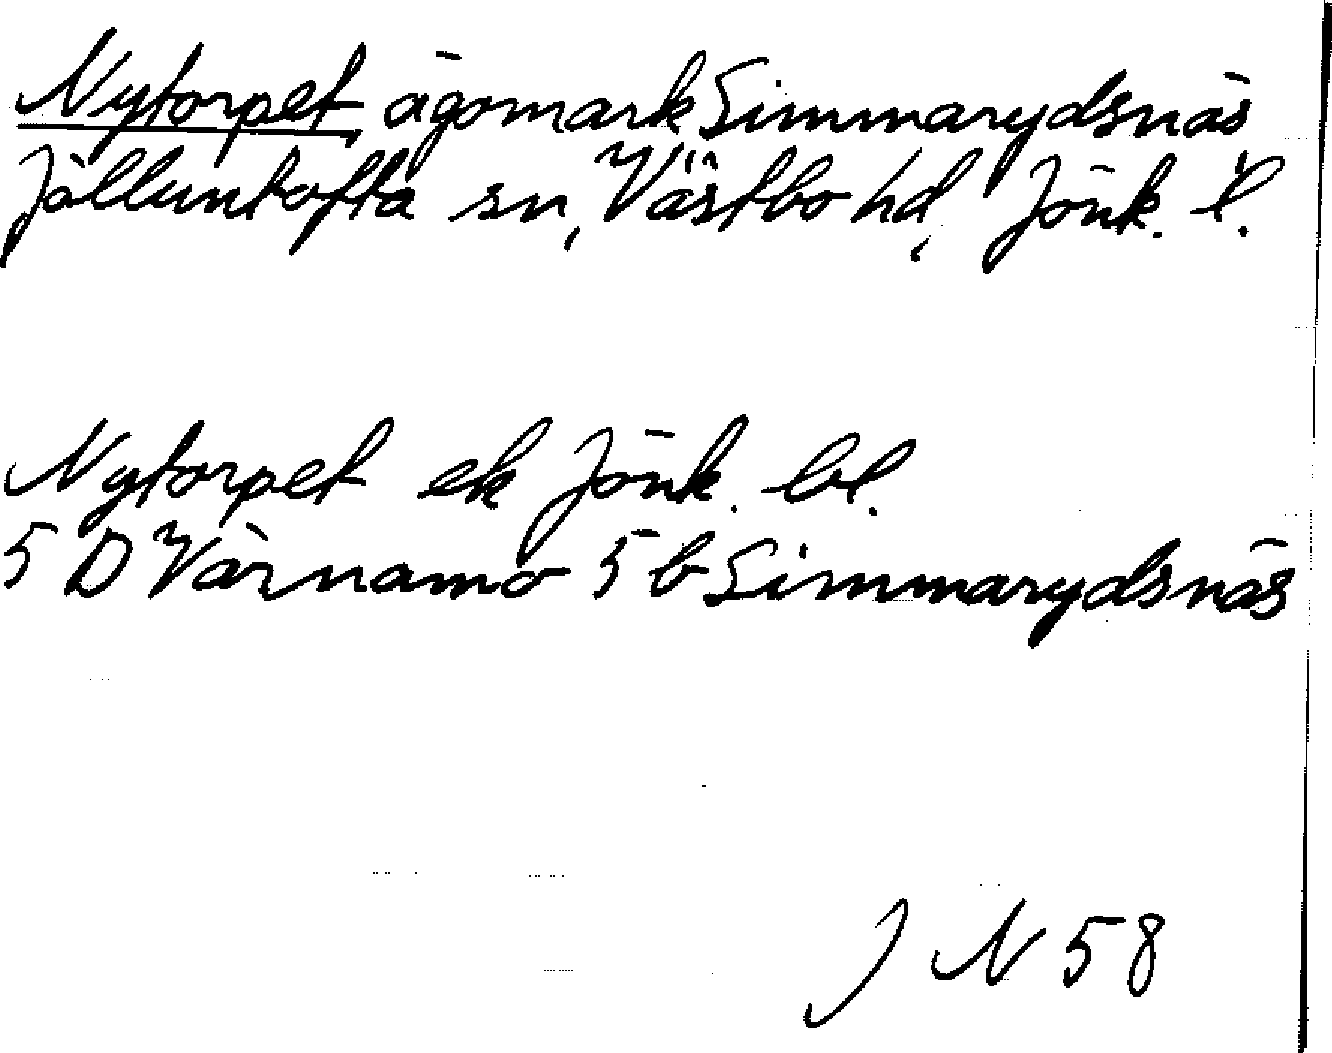 Nytorpet ägomark Simmarydsnäs
Jälluntofta sn, Västbo hd, Jönk. l.
Nytorpet ek Jönk. bl.
5 D Värnamo 5 b Simmarydsnäs
J N 58